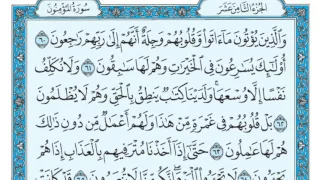 الجزء الثامن عشر
سورة المؤمنون
وَٱلَّذِينَ يُؤْتُونَ مَآ ءَاتَوا۟ وَّقُلُوبُهُمْ وَجِلَةٌ أَنَّهُمْ إِلَىٰ رَبِّهِمْ رَٰجِعُونَ ٦٠
أُو۟لَٰٓئِكَ يُسَٰرِعُونَ فِى ٱلْخَيْرَٰتِ وَهُمْ لَهَا سَٰبِقُونَ ٦١ وَلَا نُكَلِّفُ
نَفْسًا إِلَّا وُسْعَهَا وَلَدَيْنَا كِتَٰبٌ يَنطِقُ بِٱلْحَقِّ وَهُمْ لَا يُظْلَمُونَ
٦٢ بَلْ قُلُوبُهُمْ فِى غَمْرَةٍ مِّنْ هَٰذَا وَلَهُمْ أَعْمَٰلٌ مِّن دُونِ ذَٰلِكَ
هُمْ لَهَا عَٰمِلُونَ ٦٣ حَتَّىٰٓ إِذَآ أَخَذْنَا مُتْرَفِيهِم بِٱلْعَذَابِ إِذَا هُمْ